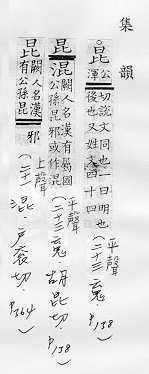 集韻
昆 公渾切說文同也一曰明也
後也又姓文四十四
平聲
(二十三魂 P138)
昆 混 闕人名漢有屬國
公孫昆邪或作混
平聲
(二十三魂．胡昆切．P138)
昆 闕人名漢
有公孫昆邪
上聲
(二十一混．戶袞切．P364)